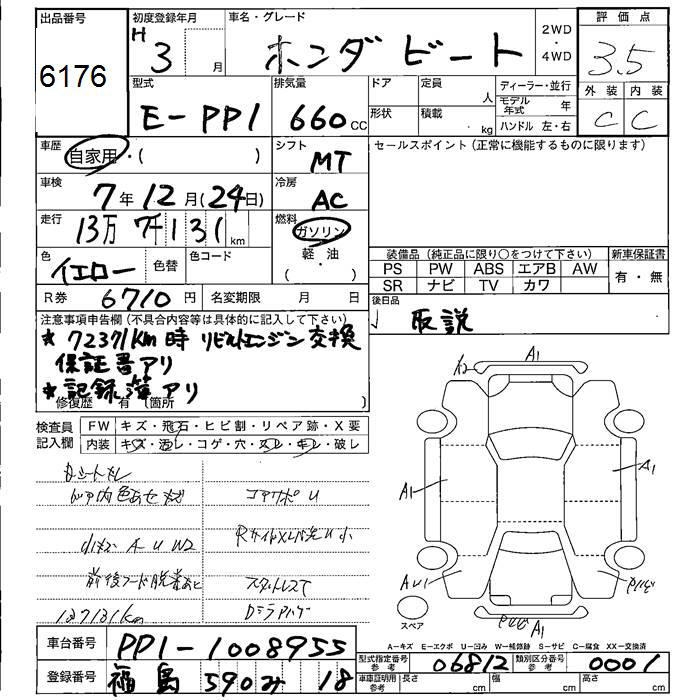 出品番号
6176
初度登録年月
H 3 月
車名・グレード
ホンダ ビート
2WD
・
4WD
評価点
3.5
外装 内装
C C
型式
E-PP1
排気量
660 cc
ドア
形状
定員
人
積載
kg
ディーラー・並行
モデル年式 年
ハンドル 左・右
車歴
自家用・( )
シフト
MT
セールスポイント (正常に機能するものに限ります)
車検
7年12月(24日)
冷房
AC
走行
13万7千131km
燃料
ガソリン
軽・油
( )
色
イエロー
色替
色コード
装備品 (純正品に限り○をつけて下さい)
新車保証書
PS PW ABS エアB AW
SR ナビ TV カワ
有・無
R券 6710円
名変期限 月 日
後日品
取説
注意事項申告欄 (不具合内容等は具体的に記入して下さい)
* 72371km時 リビルトエンジン交換
保証書アリ
* 記録簿アリ
修復歴 有 (箇所 )
検査員
記入欄
FW キズ・飛石・ヒビ割・リペア跡・X要
内装 キズ・汚レ・コゲ・穴・スレ・キレ・破レ
ドア内色あせ キズ
コアサポ U
A U W2
前後フード脱着あと
スタットレスT
137131km
A1
A1
A1
AU1
A1
スペア
A-キズ E-エクボ U-凹み W-補修跡 S-サビ C-腐食 XX-交換済
車台番号
PP1-1008955
型式指定番号
参考
06812
類別区分番号
参考
0001
登録番号
福島 590 み 18
車庫証明用
参考
長さ cm 幅 cm 高さ cm